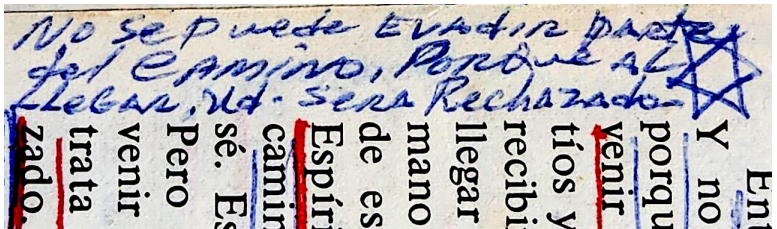 No Se Puede EVADIR parte
del CAMINO, PORQUE AL
LLEGAR, Ud. SERA Rechazado
Ent
Y no
porqu
venir
tíos y
recibi
llegar
mano
de es
Espíri
camin
sé. Es
Pero
venir
trata
zado.